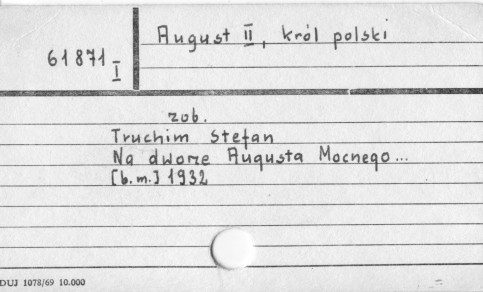 August II, król polski
61871 I
zob.
Truchim Stefan
Na dworze Augusta Mocnego...
[b.m.] 1932
DUJ 1078/69 10.000